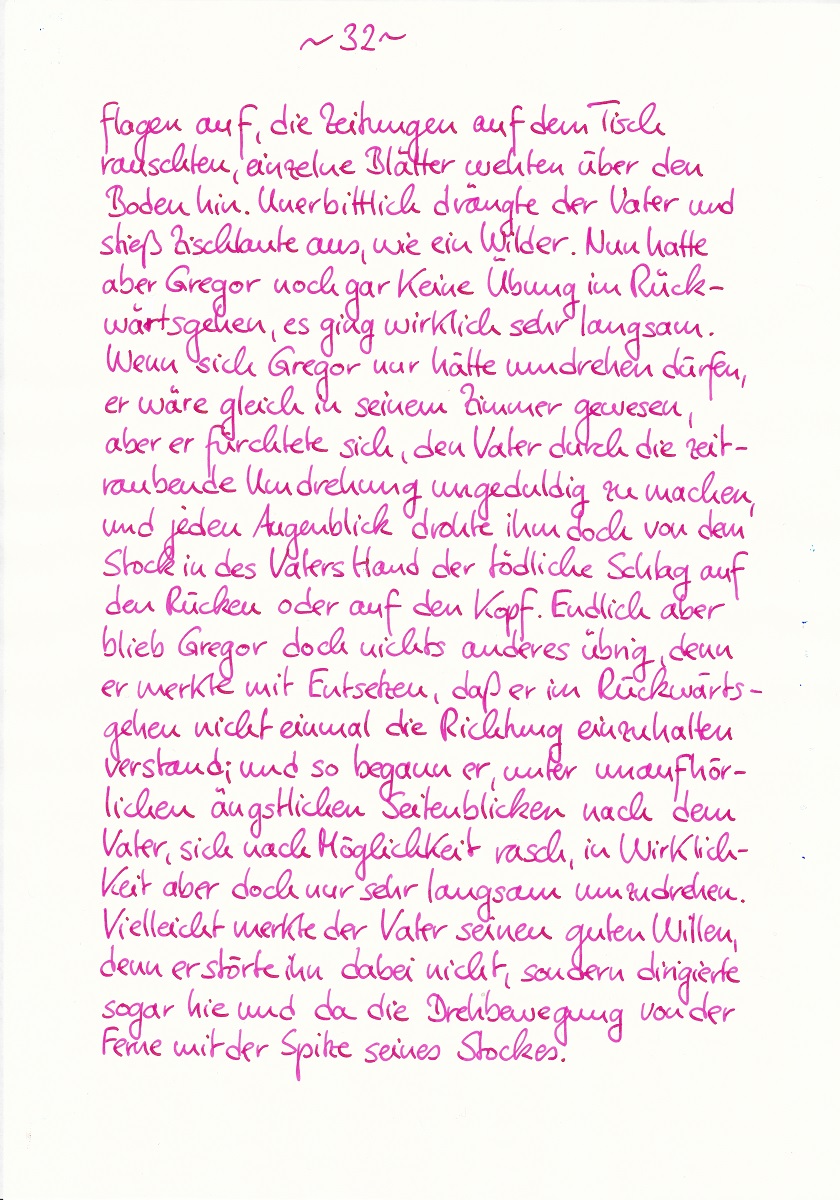 ~32~
flogen auf, die Zeitungen auf dem Tisch
rauschten, einzelne Blätter wehten über den
Boden hin. Unerbittlich drängte der Vater und
stieß Zischlaute aus, wie ein Wilder. Nun hatte
aber Gregor noch gar keine Übung im Rück-
wärtsgehen, es ging wirklich sehr langsam.
Wenn sich Gregor nur hätte umdrehen dürfen,
er wäre gleich in seinem Zimmer gewesen,
aber er fürchtete sich, den Vater durch die zeit-
raubende Umdrehung ungeduldig zu machen,
und jeden Augenblick drohte ihm doch von dem
Stock in des Vaters Hand der tödliche Schlag auf
den Rücken oder auf den Kopf. Endlich aber
blieb Gregor doch nichts anderes übrig, denn
er merkte mit Entsetzen, daß er im Rückwärts-
gehen nicht einmal die Richtung einzuhalten
verstand; und so begann er, unter unaufhör-
lichen ängstlichen Seitenblicken nach dem
Vater, sich nach Möglichkeit rasch, in Wirklich-
keit aber doch nur sehr langsam umzudrehen.
Vielleicht merkte der Vater seinen guten Willen,
denn er störte ihn dabei nicht, sondern dirigierte
sogar hie und da die Drehbewegung von der
Ferne mit der Spitze seines Stockes.